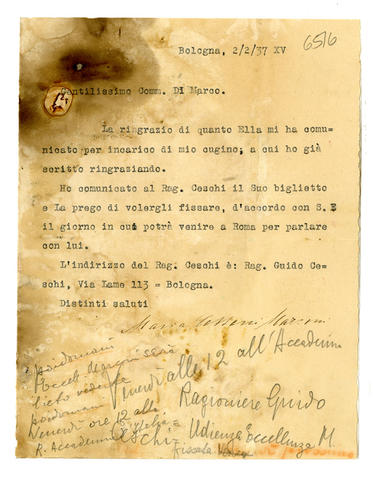 Bologna, 2/2/37 XV
6516
Gentilissimo Comm. Di Marco.
La ringrazio di quanto Ella mi ha comu-
nicato per incarico di mio cugino, a cui ho già
scritto ringraziando.
Ho comunicato al Rag. Ceschi il Suo biglietto
e La prego di volergli fissare, d'accordo con S. E
il giorno in cui potrà venire a Roma per parlare
con lui.
L'indirizzo del Rag. Ceschi è: Rag. Guido Ce-
schi, Via Lame 113 = Bologna.
Distinti saluti
Marconi
Venerdì alle 12 all'Accademia
lieto vederla
Venerdì ore 12 alla
R. Accademia
Ragioniere Guido
Ceschi
Udienza Eccellenza M.